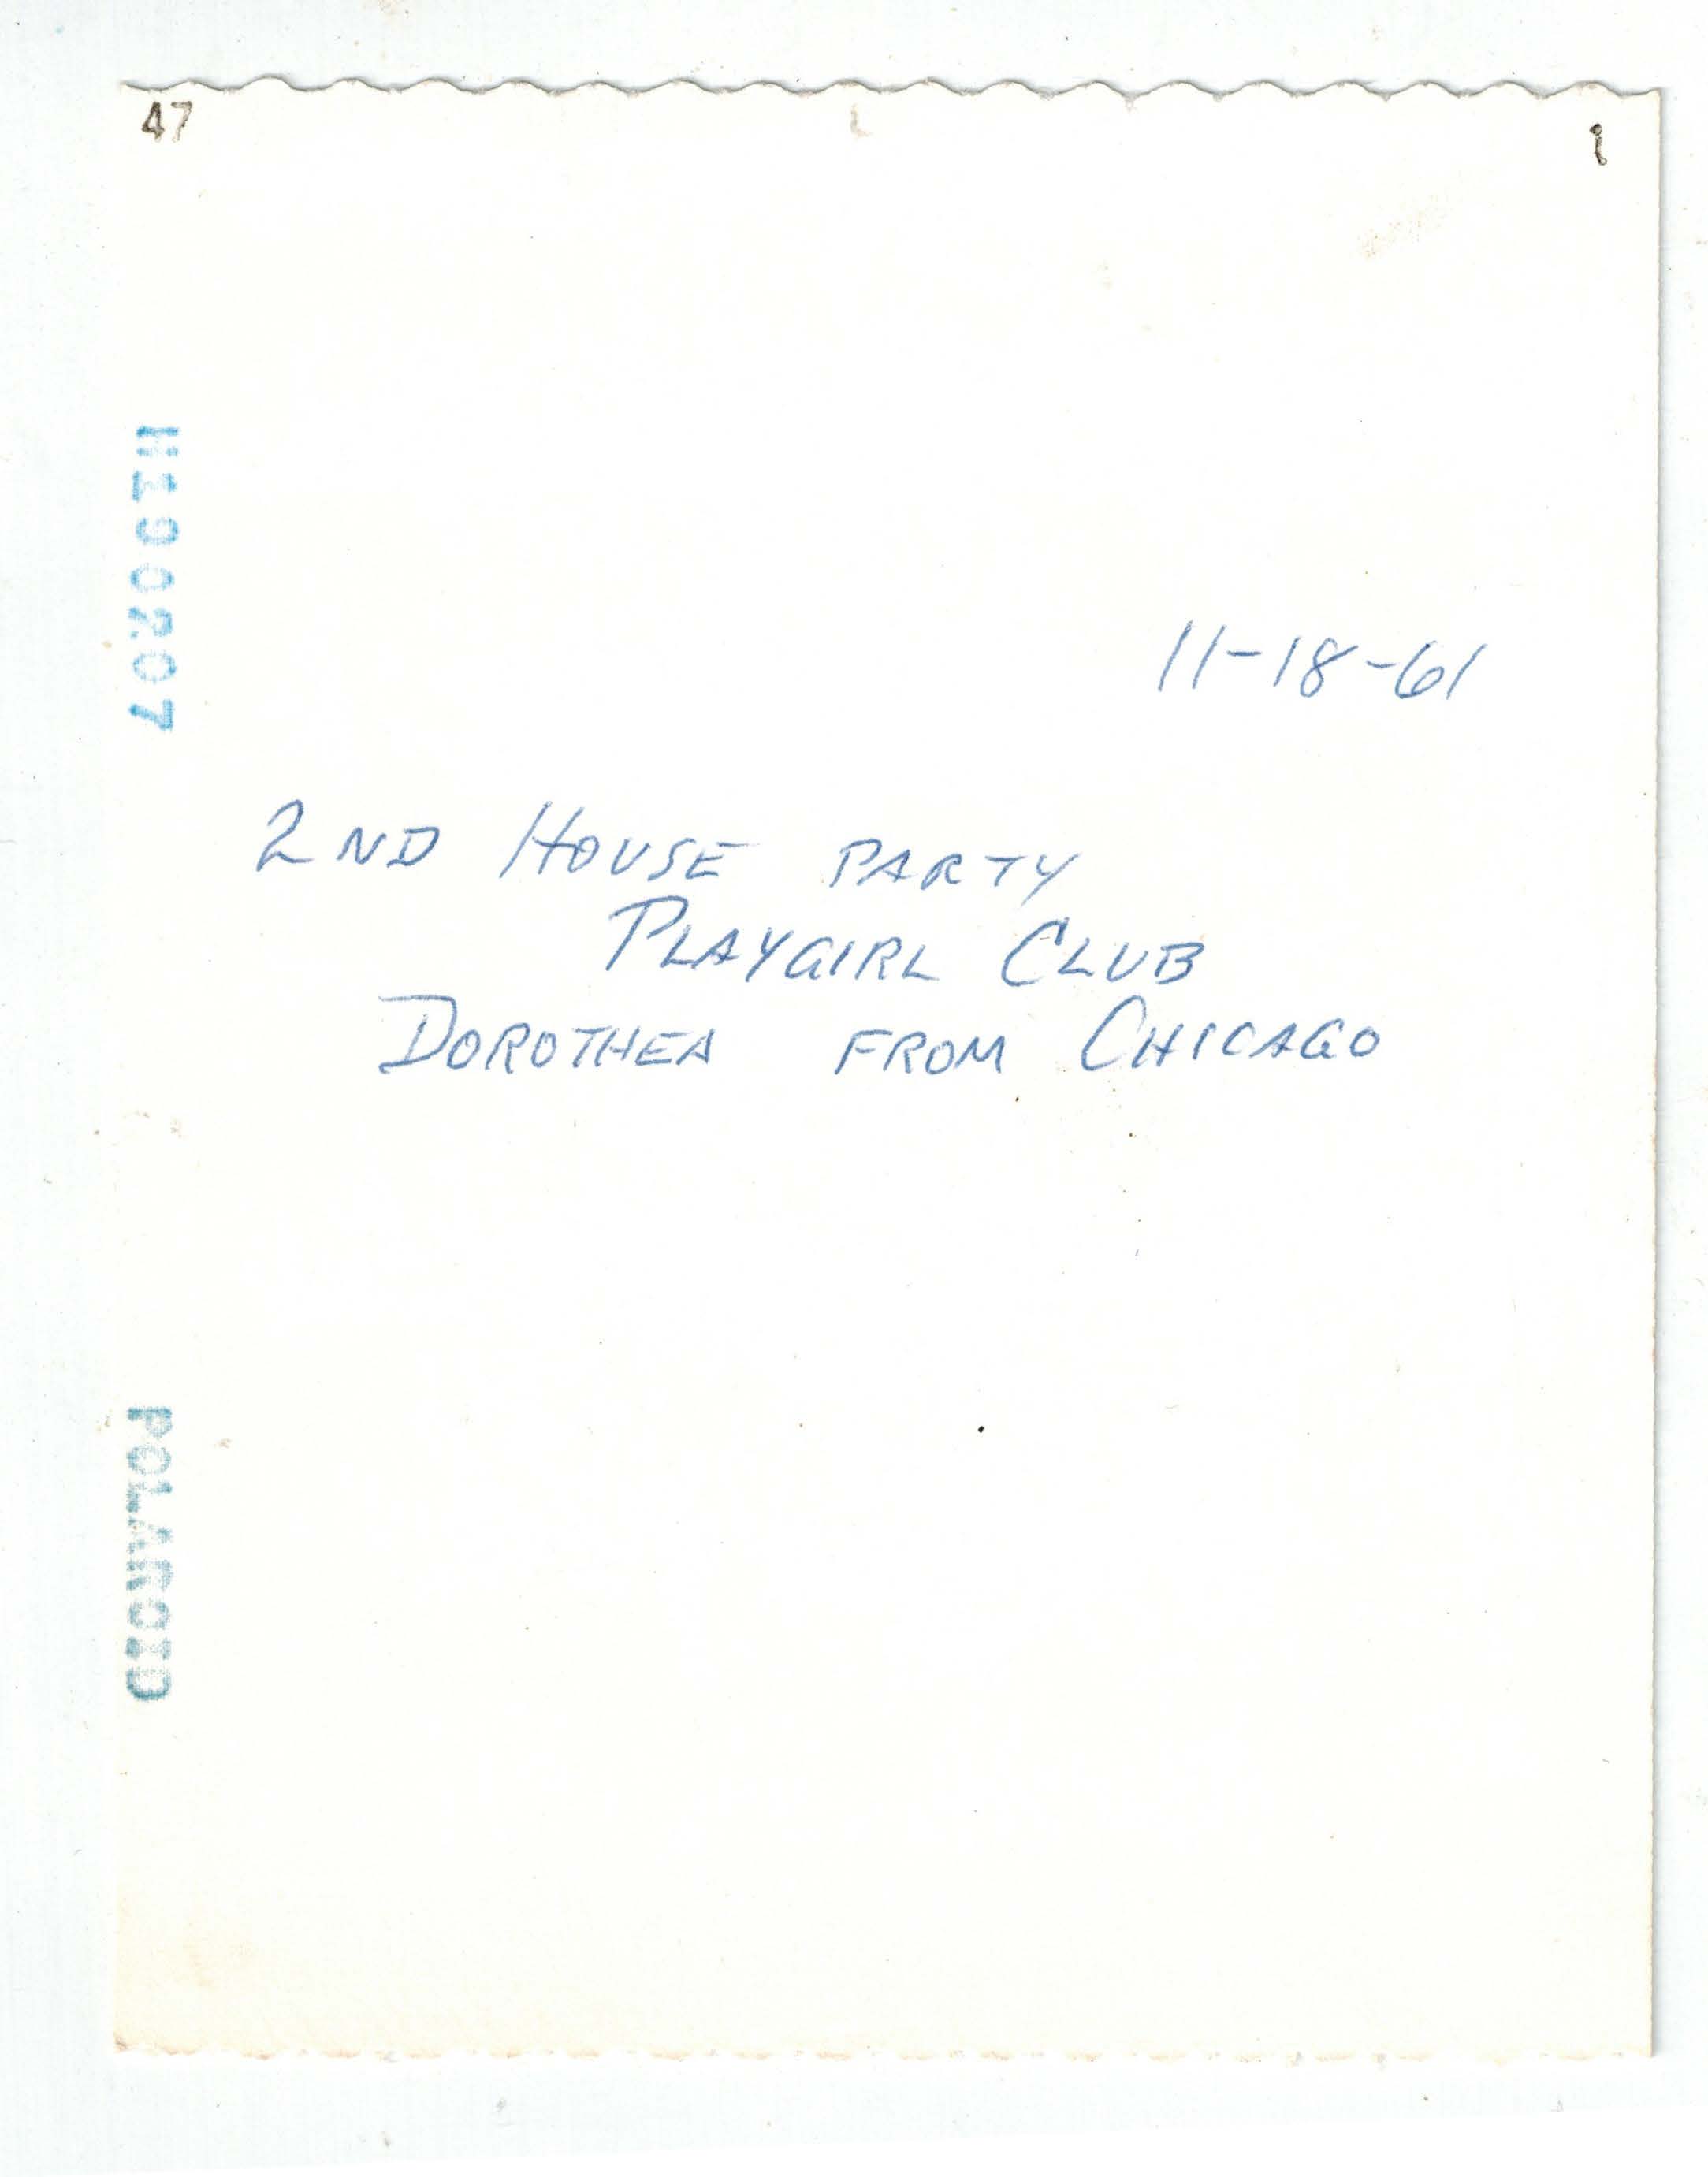 47 1
H100207
11-18-61
2ND HOUSE PARTY
PLAYGIRL CLUB
DOROTHEA FROM CHICAGO
POLAROID